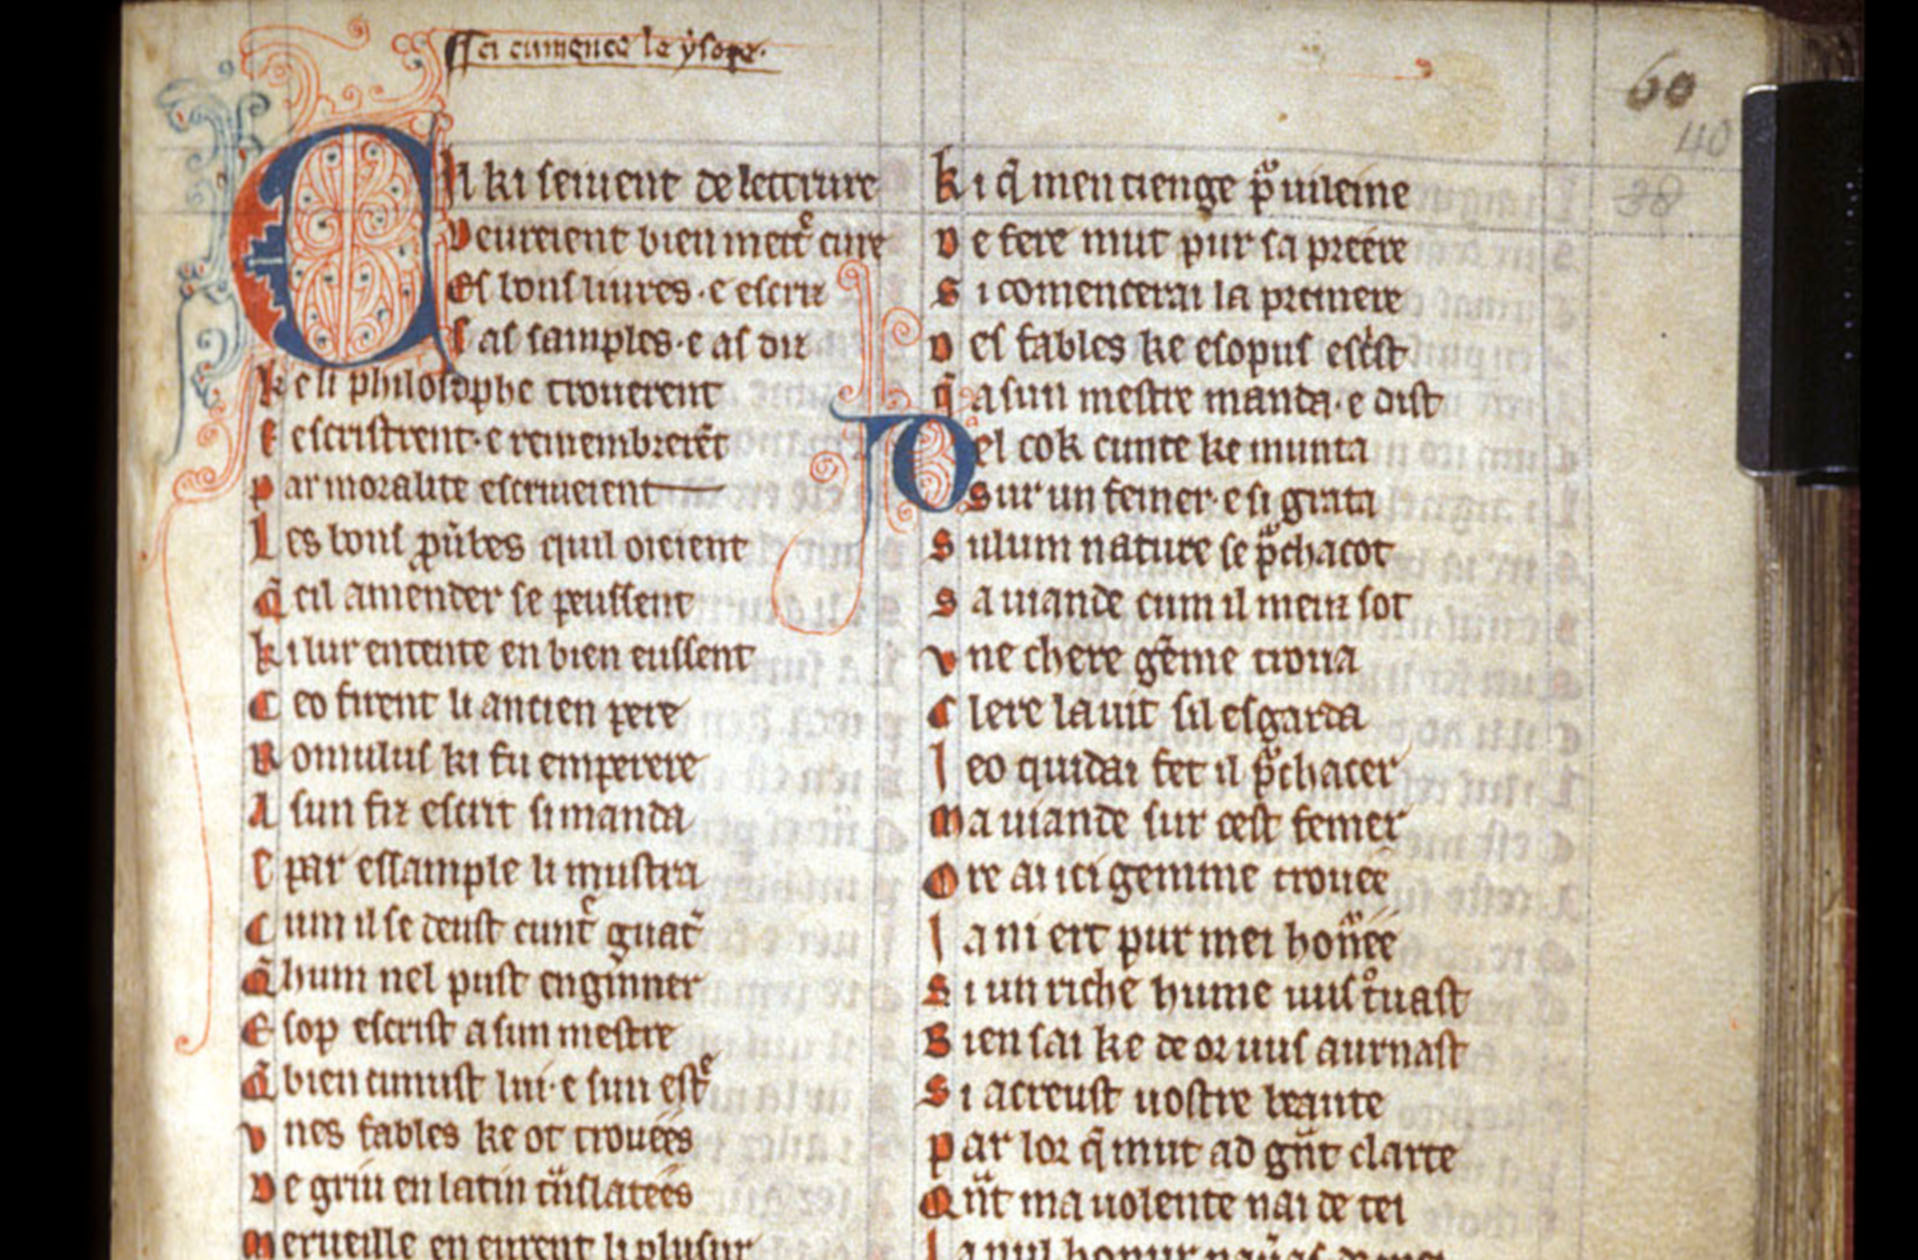 Ici cumence le ysope.
Cil ki seiuent de lettrure
Deureient bien mettre cure
Es bons liures. e escriz
Es as samples. e as diz
Ke li philosophe trouerent
E escristrent. e remembrerēt
Par moralite escriueient
Les bons ꝓūbes quil oieient
Q̄ cil amender se peussent
Ki lur entente en bien eussent
Ceo firent li ancien pere
Romulus ki fu emperere
A sun fiz escrit si manda
E par essample li mustra
Cum il se deust cunt᷑ guat᷑
Q̄ hum nel pust enginner
Esop escrist a sun mestre
Q̄ bien cunust lui. e sun estͤ
Vnes fables ke ot trouées
De griu en latin tͣnslatées
Merueille en eurent li plusur
Ki q̄ men tienge pͣ uileine
De fere mut pur sa preere
Si comencerai la premere
Des fables ke esopus escͥst
Q̄ a sun mestre manda. e dist
Del cok cunte ke munta
Sur un femer. e si grata
Sulum nature se pͣchacot
Sa uiande cum il meuz sot
Vne chere gēme troua
Clere la uit sil esgarda
Ieo quidai fet il pͣchacer
Ma uiande sur cest femer
Ore ai ici gemme trouée
Ia ni ert pur mei honͣée
Si un riche hume uus tͦuast
Bien sai ke de or uus aurnast
Si acreust uostre beaute
Par lor q̄ mut ad gͣnt clarte
Qͣnt ma uolente nai de tei
Ia nul honur nauͣas de mei
60
40
38